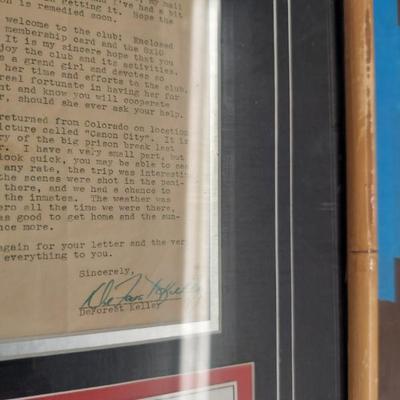 my mail
on getting it. I've had a bit
on is remedied soon. Hope the
welcome to the club: Enclosed
membership card and the 8x10
It is my sincere hope that you
joy the club and its activities.
s a grand girl and devotes so
her time and efforts to the club.
real fortunate in having her for
nt and know you will cooperate
r, should she ever ask your help.
returned from Colorado on location
picture called "Canon City". It is
ry of the big prison break last
r. I have a very small part, but
look quick, you may be able to see
any rate, the trip was interesting
the scenes were shot in the peni-
there, and we had a chance to
the inmates. The weather was
ero all the time we were there,
as good to get home and the sun-
nce more.
again for your letter and the very
everything to you.
Sincerely,
DeForest Kelley
DeForest Kelley